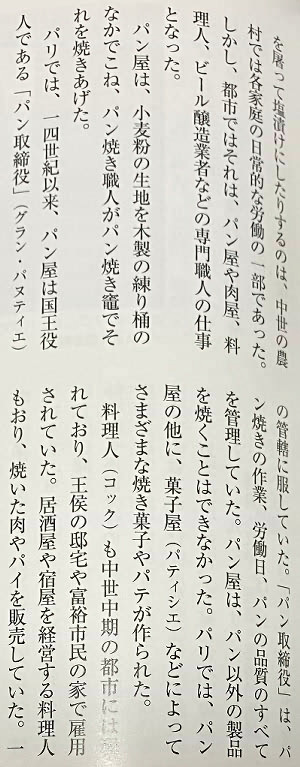 を屠って塩漬けにしたりするのは、中世の農
村では各家庭の日常的な労働の一部であった。
しかし、都市ではそれは、パン屋や肉屋、料
理人、ビール醸造業者などの専門職人の仕事
となった。
パン屋は、小麦粉の生地を木製の練り桶の
なかでこね、パン焼き職人がパン焼き竈でそ
れを焼きあげた。
パリでは、一四世紀以来、パン屋は国王役
人である「パン取締役」（グラン・パヌティエ）
の管轄に服していた。「パン取締役」は、パ
ン焼きの作業、労働日、パンの品質のすべて
を管理していた。パン屋は、パン以外の製品
を焼くことはできなかった。パリでは、パン
屋の他に、菓子屋（パティシエ）などによって
さまざまな焼き菓子やパテが作られた。
料理人（コック）も中世中期の都市には
れており、王侯の邸宅や富裕市民の家で雇用
されていた。居酒屋や宿屋を経営する料理人
もおり、焼いた肉やパイを販売していた。一